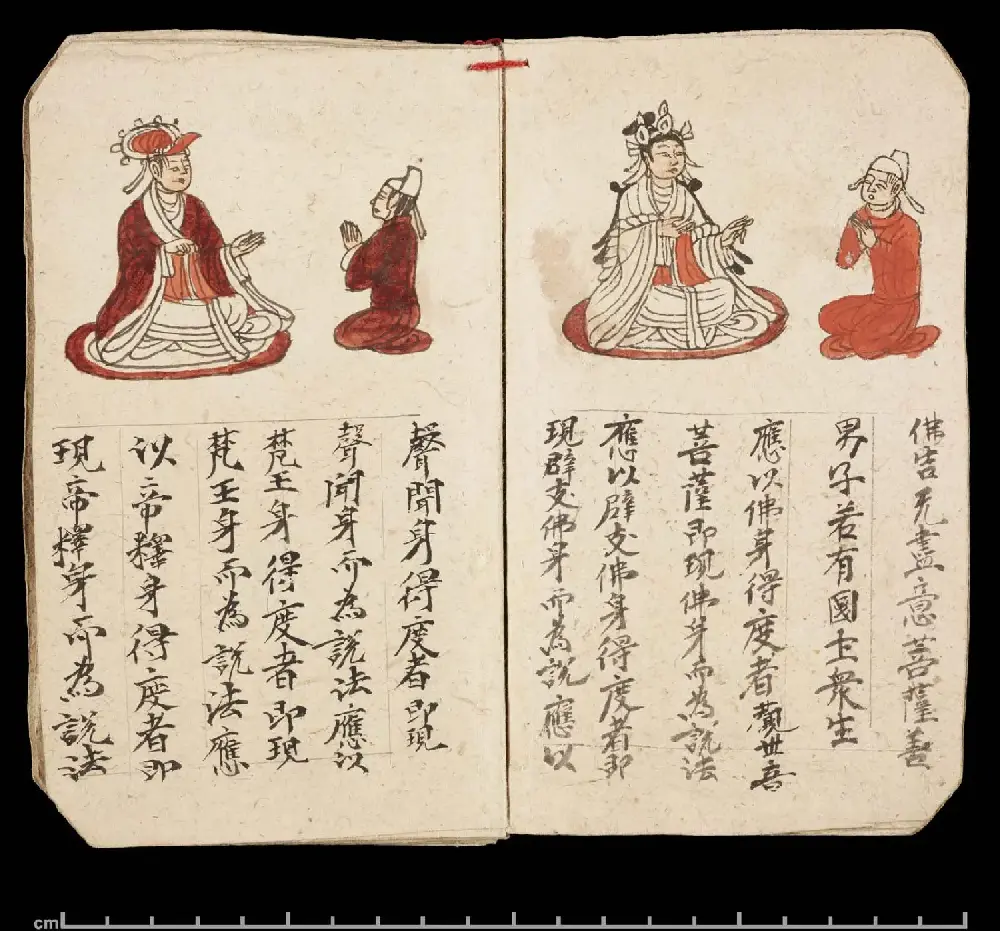 佛告无盡意菩薩善
男子若有國土衆生
應以佛身得度者觀世音
菩薩即現佛身而為說法
應以辟支佛身得度者即
現辟支佛身而為說應以
聲聞身得度者即現
聲聞身而為說法應以
梵王身得度者即現
梵王身而為說法應
以帝釋身得度者即
現帝釋身而為說法
cm